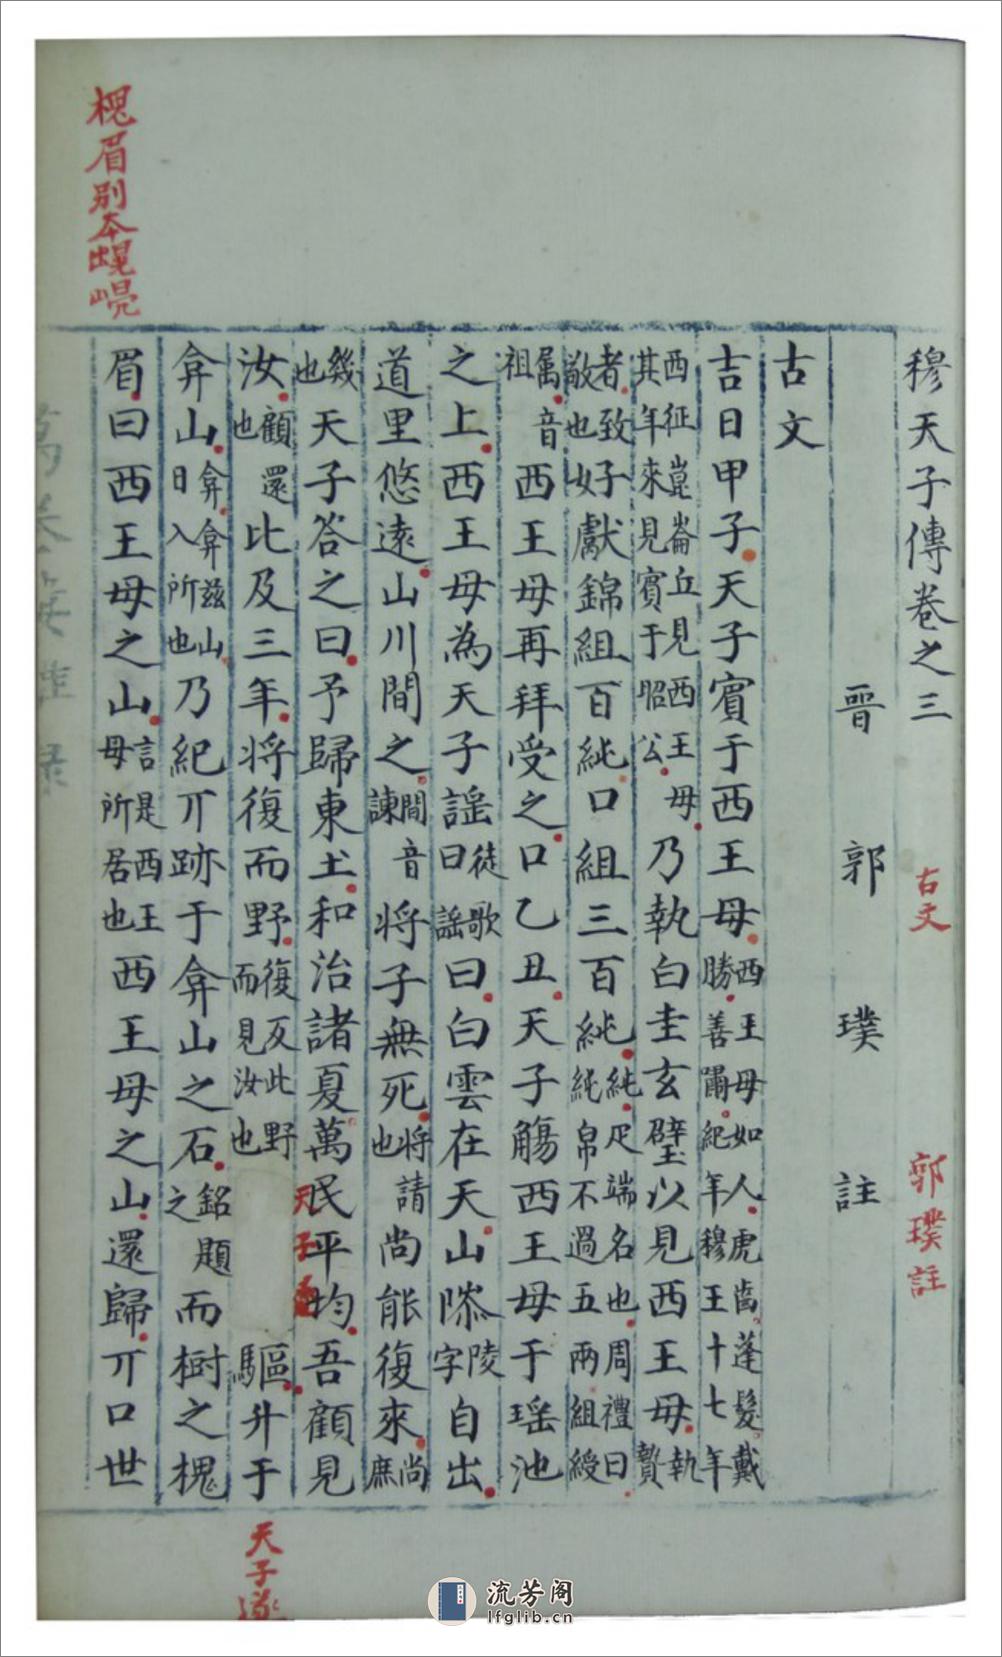 穆天子傳卷之三
古文
郭璞註
晉郭璞註
古文
吉日甲子天子賓于西王母西王母如人虎齒蓬髮戴勝善嘯紀年穆王十七年
西征崑崙丘見西王母其年來見賓于昭公乃執白圭玄璧以見西王母執贄
者致敬也好獻錦組百純口組三百純純疋端名也周禮曰純帛不過五兩組綬
屬音祖西王母再拜受之口乙丑天子觴西王母于瑶池
之上西王母為天子謡徒歌曰謡曰白雲在天山𨻶陵字自出
道里悠遠山川間之間音諫將子無死將請也尚能復來尚庶
幾也天子答之曰予歸東土和治諸夏萬民平均吾顧見
汝顧還也比及三年將復而野復反此野而見汝也驅升于
天子遂
弇山弇弇兹山日入所也乃紀丌跡于弇山之石銘題之而樹之槐
眉曰西王母之山言是西王母所居也西王母之山還歸丌口世
槐眉別本出
流芳阁
lfglib.cn